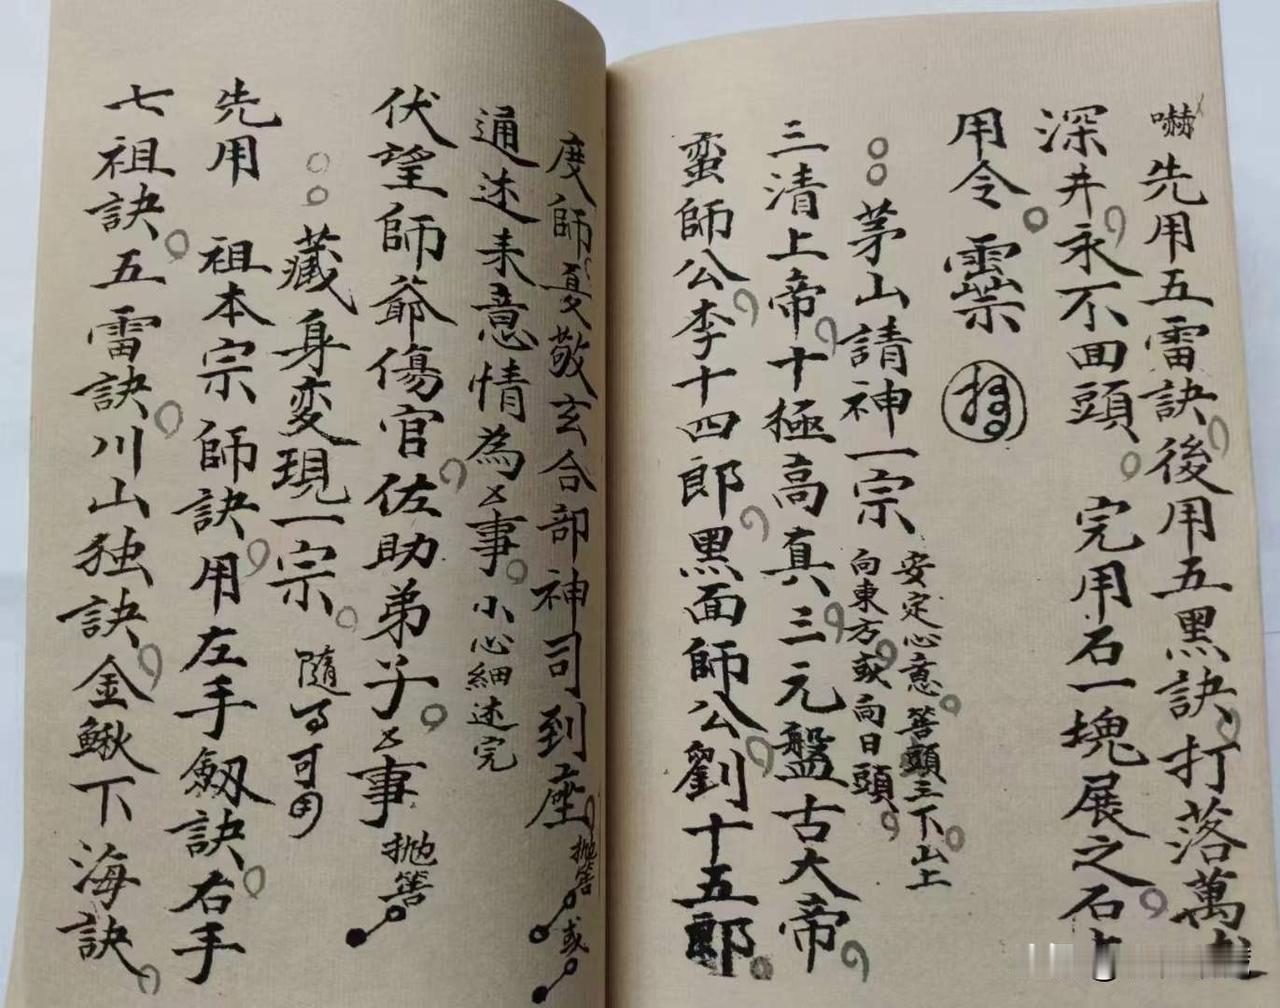 嚇先用五雷訣後用五黑訣打落萬丈
深井永不回頭 完用石一塊展之石上
用令
茅山請神一宗 安定心意筶頭三下山上
向東方或向日頭
三清上帝十極高真三元盤古大帝
蛮師公李十四郎黑面師公劉十五郎
度師敬玄合部神司到座 抛筶 或
通述来意情為事 小心細述完
伏望師爺傷官佐助弟子事 抛筶
藏身変現一宗 隨可用
先用 祖本宗師訣用左手劔訣右手
七祖訣五雷訣川山独訣金鰍下海訣